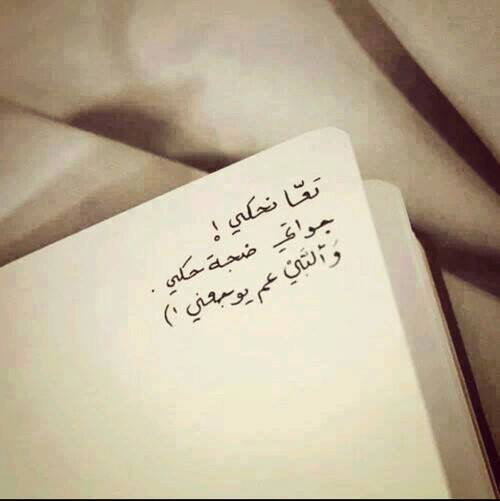 تعّا نحكي !
جواتي ضجة حكي .
وَٱلنَّبيْ عم يوجعني !)